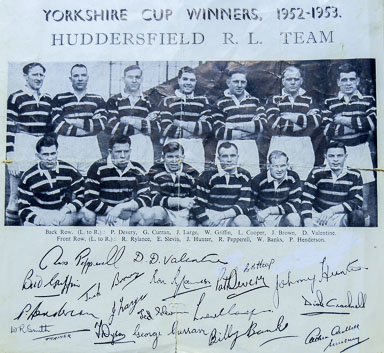 YORKSHIRE CUP WINNERS, 1952-1953.
HUDDERSFIELD R. L. TEAM
Back Row. (L. to R.): P. Devery, G. Curran, J. Large, W. Griffin, L. Cooper, J. Brown, D. Valentine.
Front Row. (L. to R.): R. Rylance, E. Slevin, J. Hunter, R. Pepperell, W. Banks, P. Henderson.
Russ Pepperell D. D. Valentine
Bill Griffin Pat Devery Johnny Hunter
P Henderson J Large Dick Cracknell
W.R. Smith George Curran Billy Banks